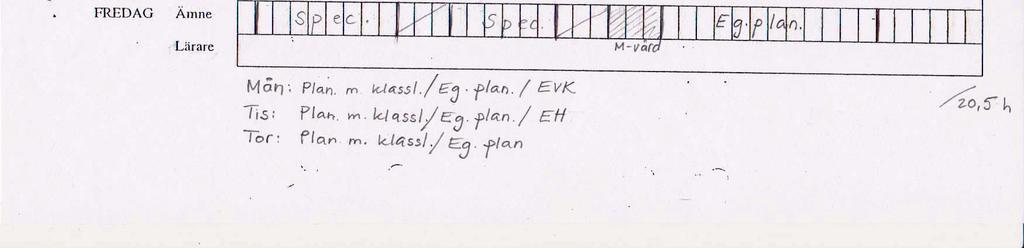 FREDAG Ämne Spec. Spec. Eg. plan.
Lärare M-vård
Mån: Plan. m. klassl./Eg. plan. / EVK
Tis: Plan. m. klassl./Eg. plan. / EH
Tor: Plan. m. klassl./ Eg. plan
/20,5 h